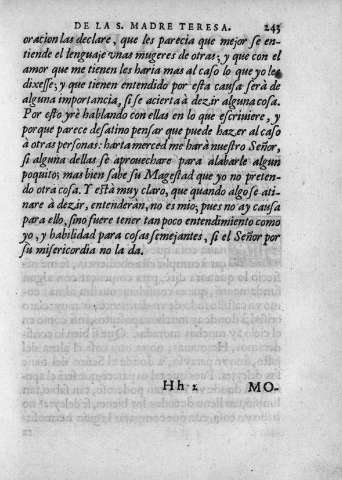 DE LA S. MADRE TERESA. 243
oracion las declare, que les parecia que mejor se en-
tiende el lenguaje vnas mugeres de otras; y que con el
amor que me tienen les haria mas al caso lo que yo les
dixesse; y que tienen entendido por esta causa serà de
alguna importancia, si se acierta à dezir alguna cosa.
Por esto yrè hablando con ellas en lo que escriuiere, y
porque parece desatino pensar que puede hazer al caso
à otras personas: harta merced me harà nuestro Señor,
si alguna dellas se aprouechare para alabarle algun
poquito; mas bien sabe su Magestad que yo no preten-
do otra cosa. Y està muy claro, que quando algo se ati-
nare à dezir, entenderàn, no es mio; pues no ay causa
para ello, sino fuere tener tan poco entendimiento como
yo, y habilidad para cosas semejantes, si el Señor por
su misericordia no la da.
Hh 2 MO-